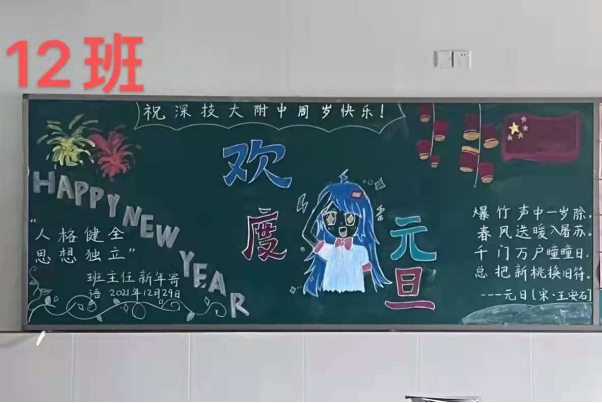 12班
祝深技大附中周岁快乐!
欢度元旦
HAPPY NEW YEAR
"人格健全
思想独立"
班主任新年寄
语 2021年12月29日
爆竹声中一岁除.
春风送暖入屠苏.
千门万户曈曈日.
总把新桃换旧符.
---元日[宋·王安石]